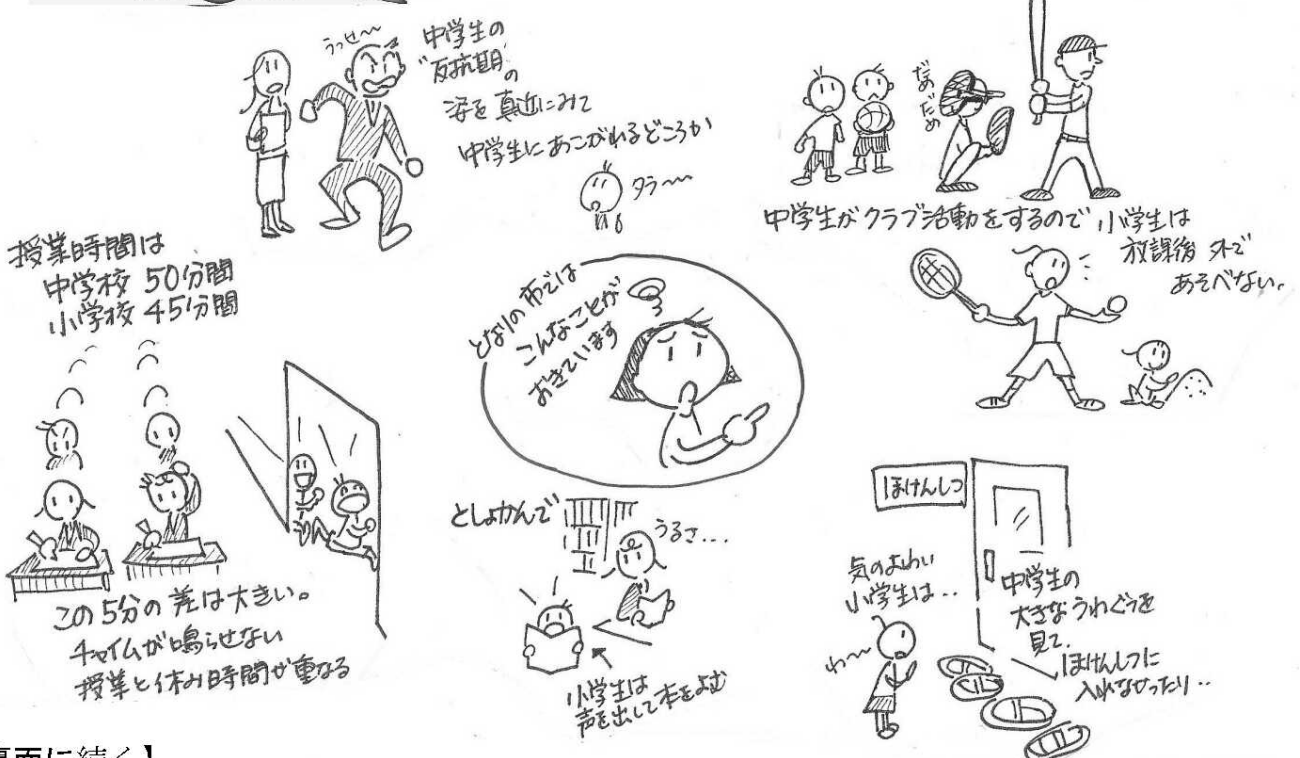 うっせ〜
中学生の
"反抗期"の
姿を真近にみて
中学生にあこがれるどころか
タラ〜
だめだめ
中学生がクラブ活動をするので小学生は
放課後外で
あそべない。
授業時間は
中学校 50分間
小学校 45分間
この5分の差は大きい。
チャイムが鳴らせない
授業と休み時間が重なる
となりの市では
こんなことが
おきています
としょかんで
うるさ...
小学生は
声を出して本をよむ
ほけんしつ
気のよわい
小学生は..
わ〜
中学生の
大きなうわぐつを
見て、
ほけんしつに
入れなかったり..
裏面に続く】